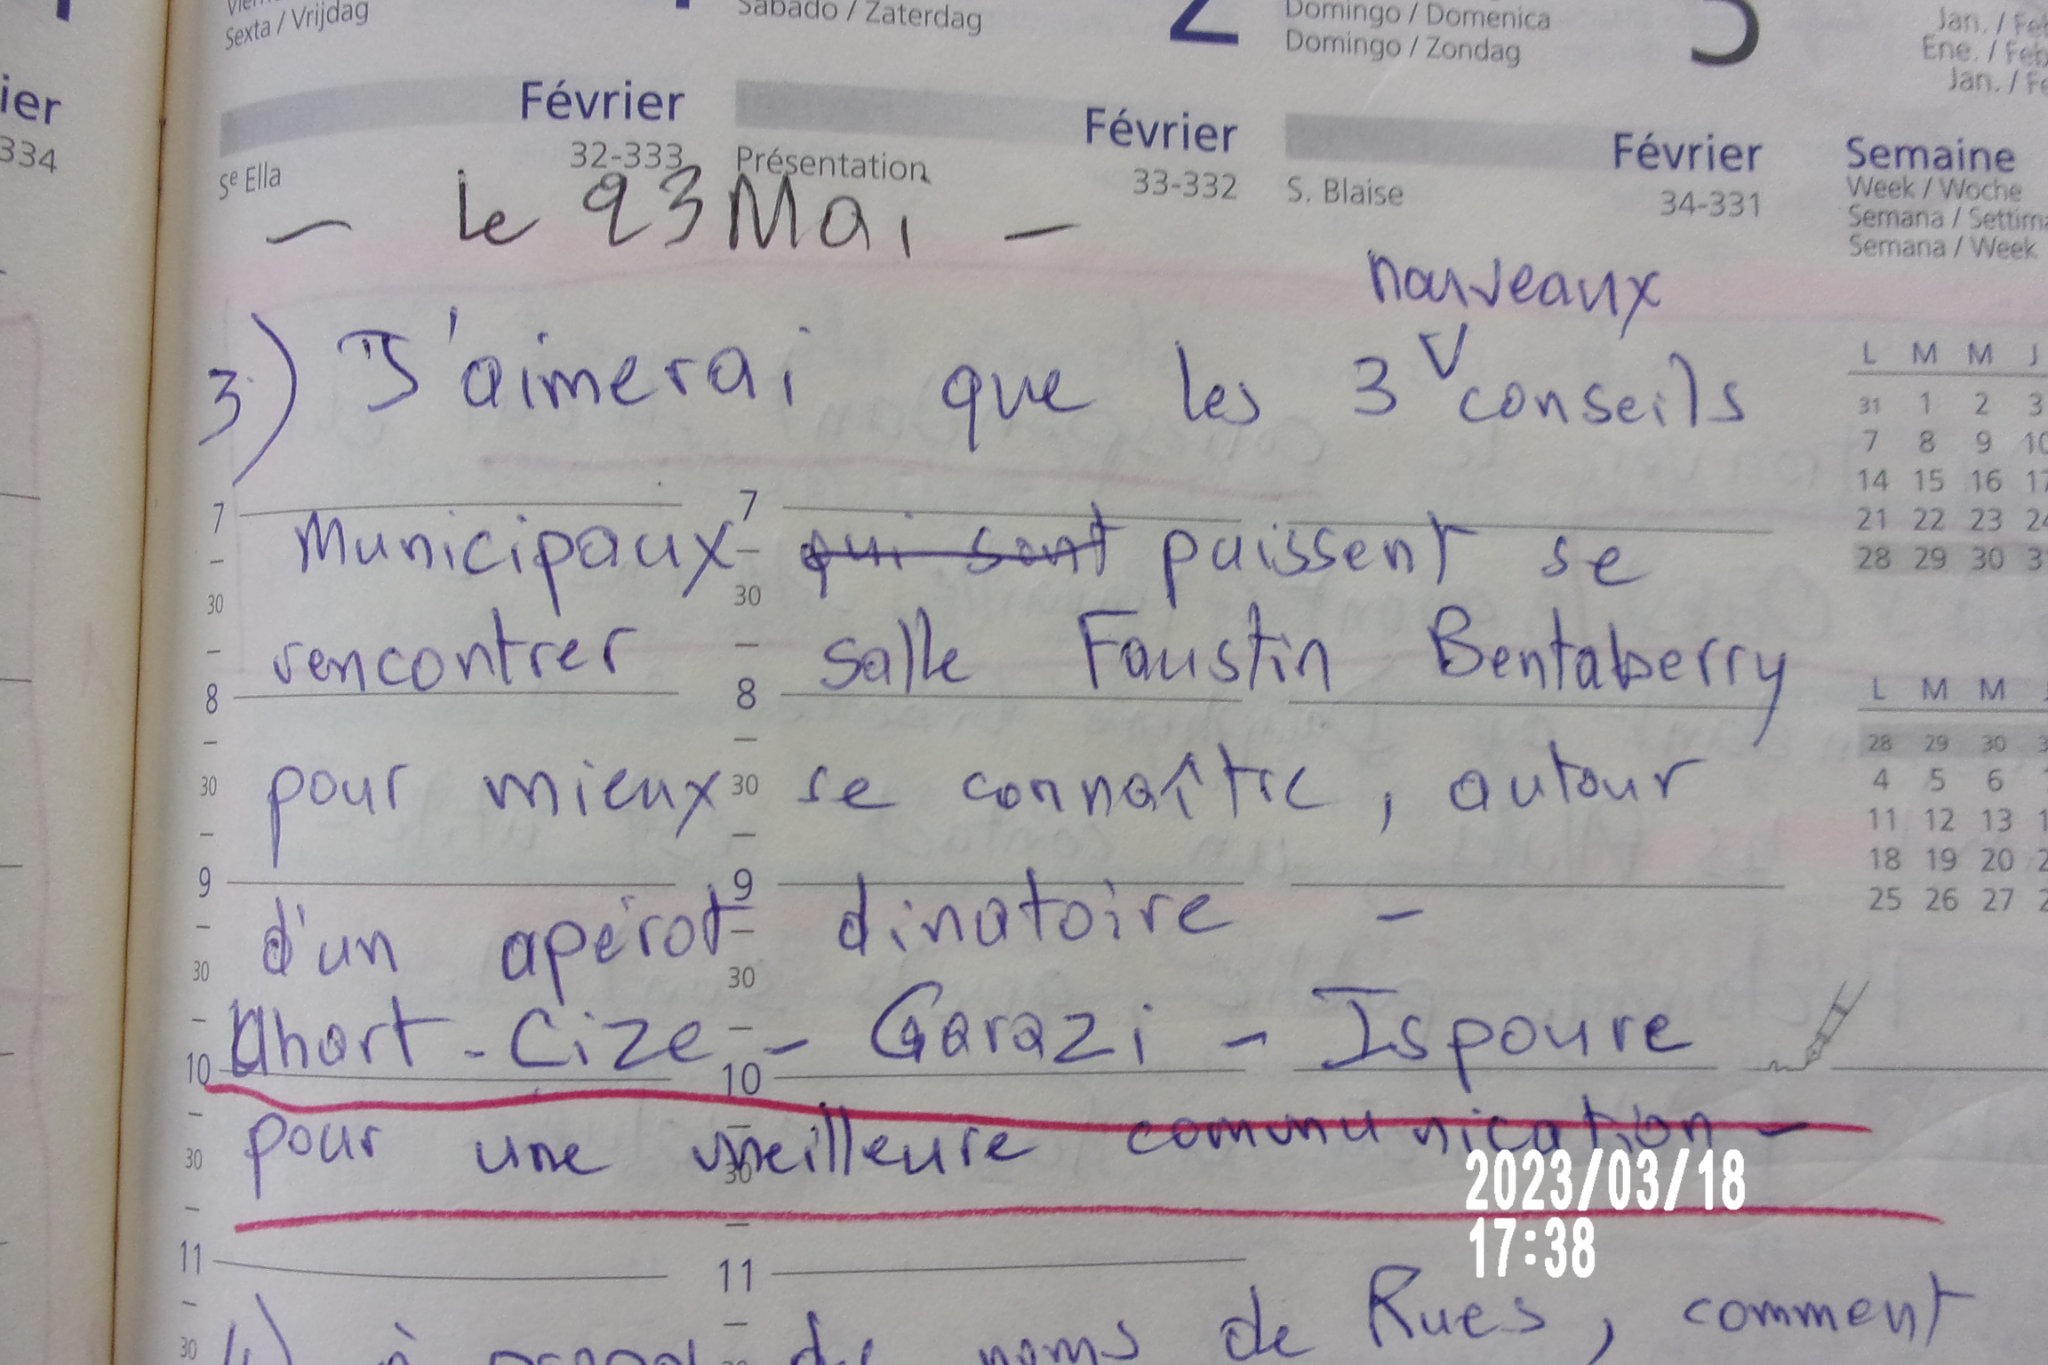 ier
334
Sexta / Vrijdag
Sábado / Zaterdag
2
Domingo / Domenica
Domingo / Zondag
3
Jan. / Fe
Ene. / Feb
Jan. / Fe
Février
32-333
Sᵉ Ella
Février
33-332
Présentation
Février
34-331
S. Blaise
Semaine
Week / Woche
Semana / Settima
Semana / Week
- Le 23 Mai -
nouveaux
3) J'aimerai que les 3 V conseils
Municipaux qui sont puissent se
rencontrer salle Faustin Bentaberry
pour mieux se connaître, autour
d'un apérot dinatoire -
Uhart-Cize - Garazi - Ispoure
pour une meilleure communication -
4) à propos des noms de Rues, comment
7
30
8
30
9
30
10
30
11
30
7
30
8
30
9
30
10
30
11
L M M J
31 1 2 3
7 8 9 10
14 15 16 17
21 22 23 24
28 29 30 31
L M M
28 29 30 3
4 5 6
11 12 13 1
18 19 20 2
25 26 27 2
2023/03/18
17:38